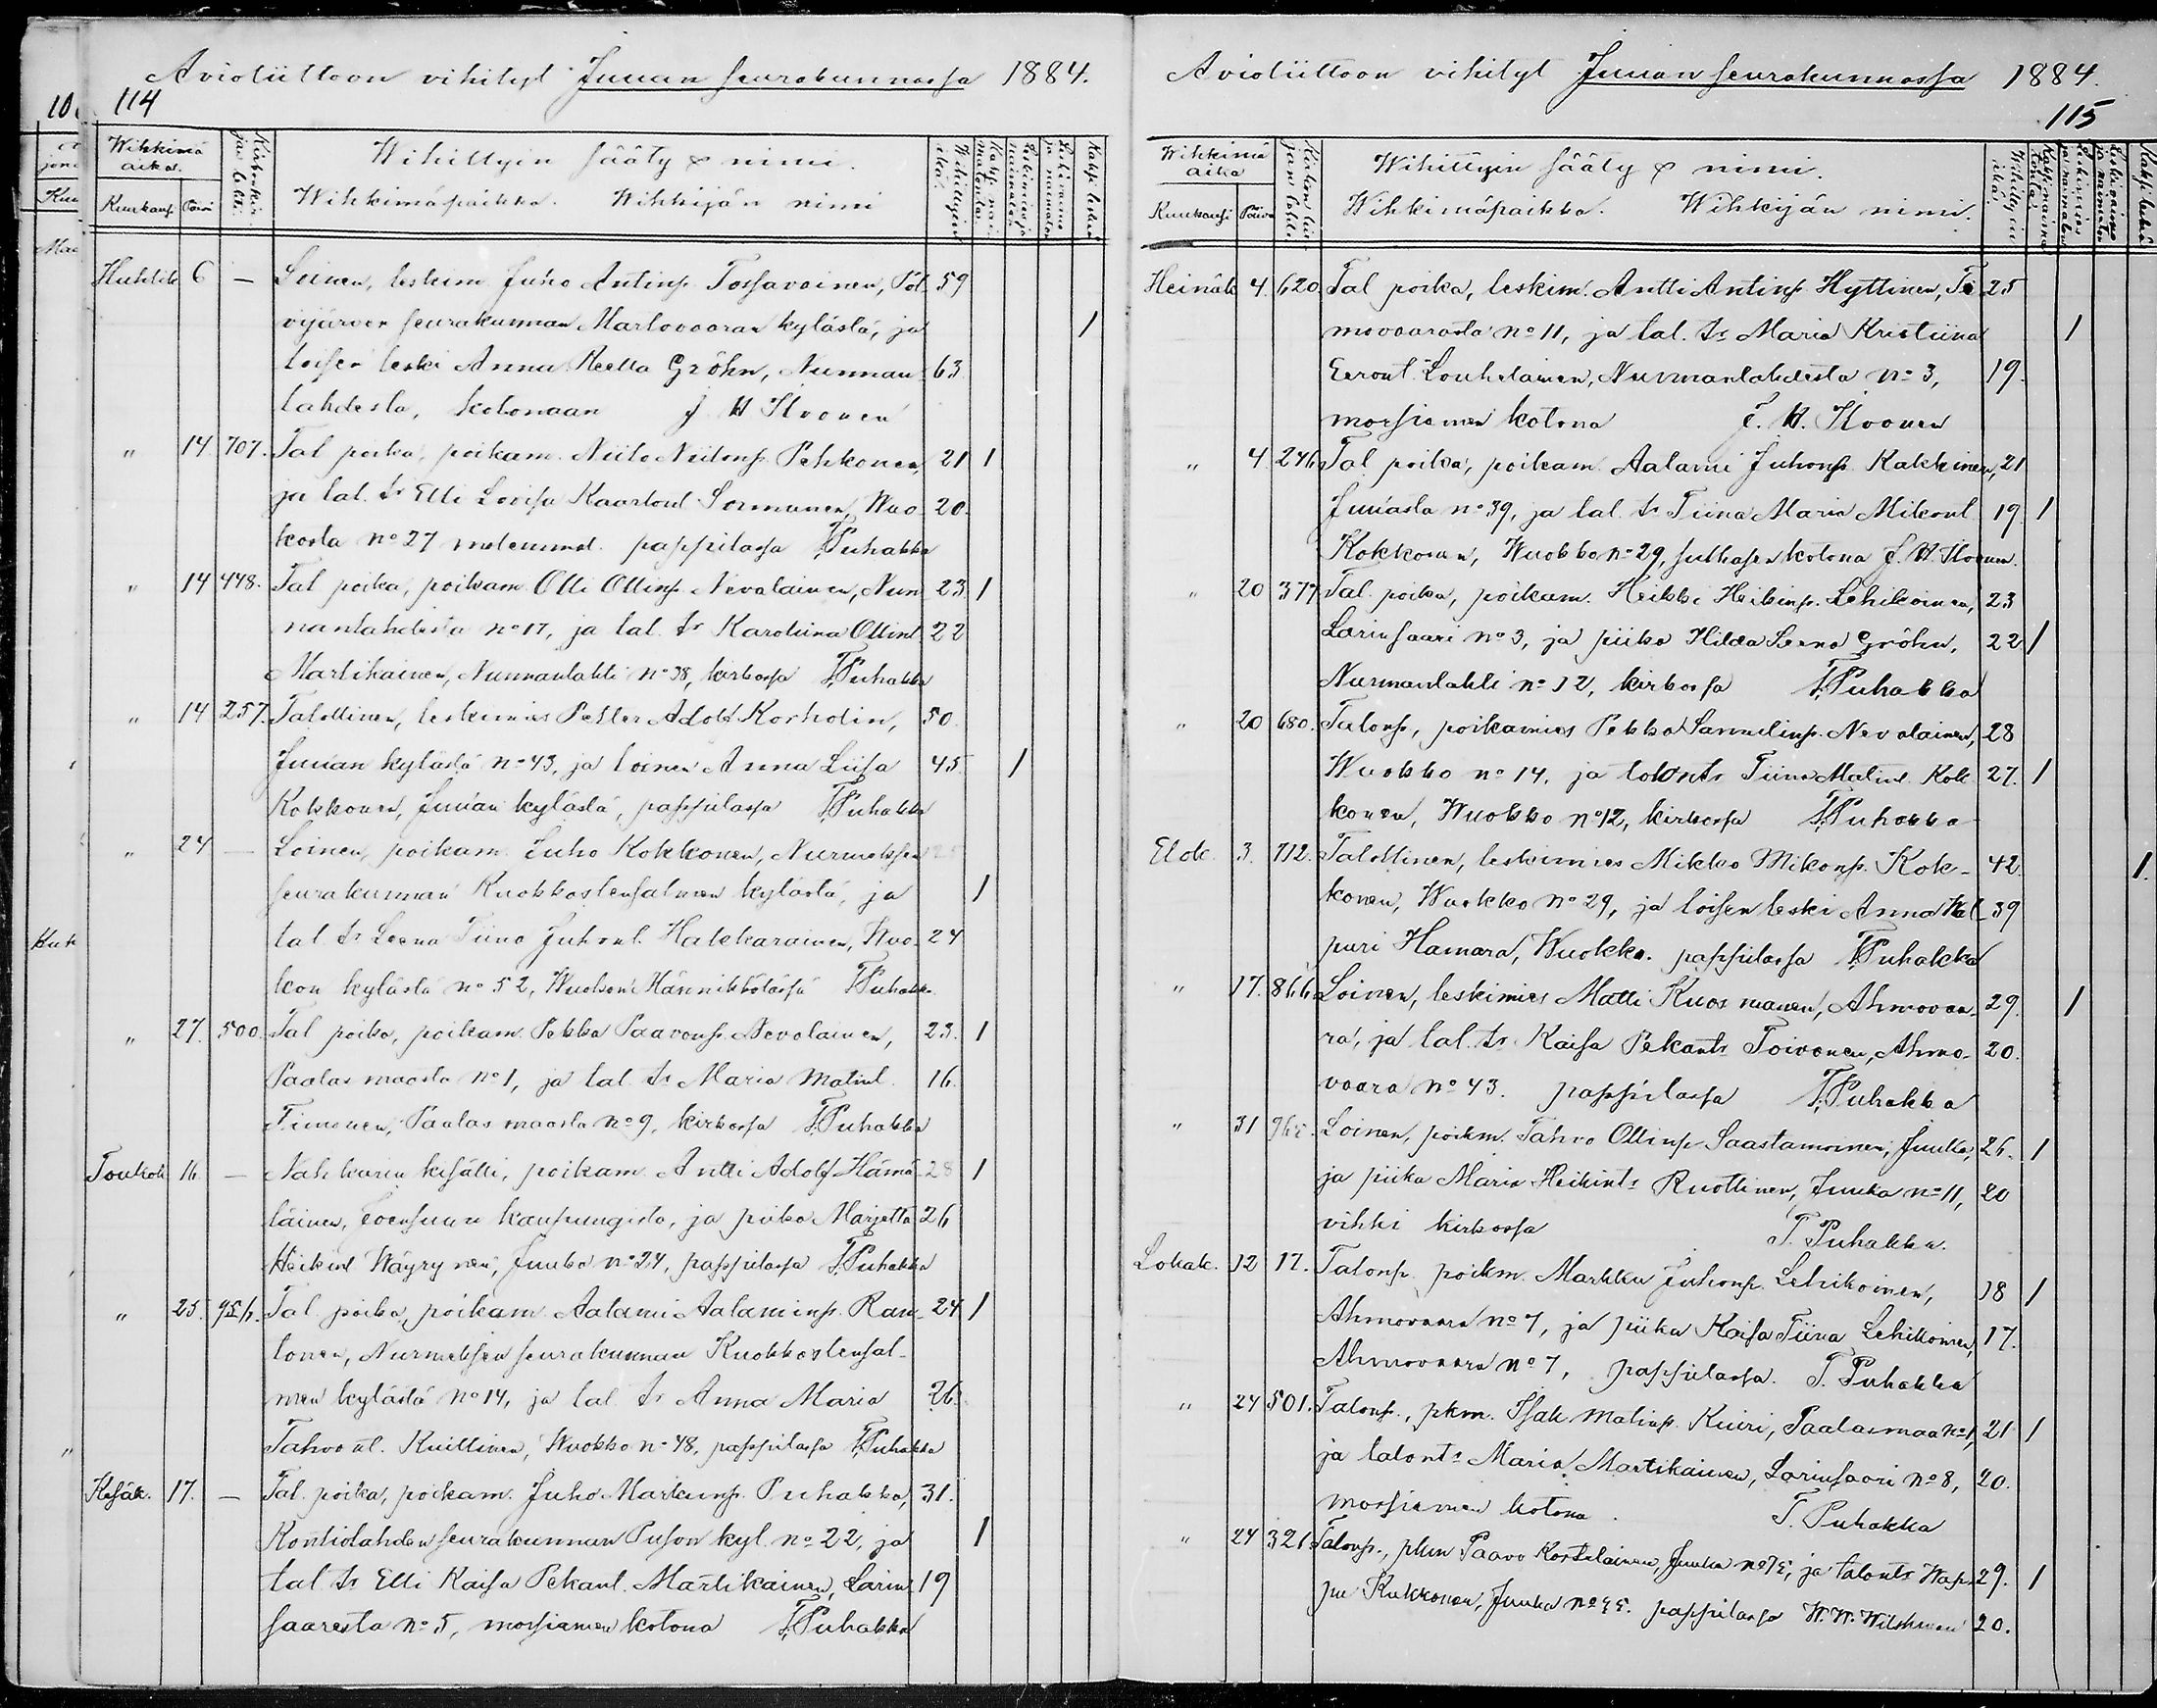 Avioliittoon vihityt Juuan seurakunnassa 1884.
114
Wihkimä aika.
Kuukausi Päivä
Wihittyin sääty & nimi.
Wihkimäpaikka. Wihkijän nimi
Wihittyin ikä.
Kaksi leskeä
Huhtik 6 — Loinen, leskim. Juho Antinp. Tossavainen, Pol 59
vijärven seurakunnan Martovaaran kylästä, ja 1
loisen leski Anna Reetta Gröhn, Nunnan 63
lahdesta, kotonaan J. W. Iloonen
" 14 707. Tal poika, poikam. Niilo Niilonp. Pehkonen, 21 1
ja tal. tr Elli Lovisa Kaarlont Sormunen, Wuo 20.
kosta no 27 pappilassa T. Puhakka
" 14 448. Tal poika, poikam. Olli Ollinp. Nevalainen, Nun 23. 1
nanlahdesta no 17, ja tal. tr Karoliina Ollint 22
Martikainen, Nunnanlahti no 38, kirkossa T. Puhakka
" 14 257. Talollinen, leskimies Petter Adolf Korholin, 50.
Juuan kylästä no 43, ja loinen Anna Liisa 45 1
Kokkonen, Juuan kylästä, pappilassa T. Puhakka
" 24 — Loinen, poikam. Juho Kokkonen, Nurmeksen 25
seurakunnan Kuokkastensalmen kylästä, ja 1
tal. tr Leena Tiina Juhont. Hakkarainen, Wuo- 24
kon kylästä no 52, Wuokon Hännikkölässä T. Puhakka
" 27. 500. Tal poika, poikam. Pekka Paavonp. Nevalainen, 23. 1
Paalasmaasta no 1, ja tal. tr Maria Matint. 16.
Timonen, Paalasmaasta no 9, kirkossa T. Puhakka
Toukok 16. — Nahkurin kisälli, poikam. Antti Adolf Hämä- 28 1
läinen, Joensuun kaupungista, ja piika Marjetta 26
Heikint Wäyrynen, Juuka no 24, pappilassa T. Puhakka
" 25. 956. Tal. poika, poikam. Aalami Aalaminp. Ran- 24 1
tonen, Nurmeksen seurakunnan Kuokkastensal-
men kylästä no 14, ja tal. tr Anna Maria 26.
Tahvont. Kuittinen, Wuokko no 48, pappilassa T. Puhakka
Kesäk. 17. — Tal. poika, poikam. Juho Markunp. Puhakka, 31.
Kontiolahden seurakunnan Puson kyl. no 22, ja 1
tal tr Elli Kaisa Pekant. Martikainen, Larin 19
saaresta no 5, morsiamen kotona T. Puhakka
Avioliittoon vihityt Juuan seurakunnassa 1884.
115
Wihkimä aika
Kuukausi Päivä
Wihittyin sääty & nimi.
Wihkimäpaikka. Wihkijän nimi.
Wihittyin ikä
Kaksi leskeä
Heinäk 4. 620. Tal poika, leskim. Antti Antinp. Hyttinen, Ti 25
movaarasta no 11, ja tal. tr Maria Kristiina 1
Eeront. Louhelainen, Nunnanlahdesta no 3, 19.
morsiamen kotona J. W. Iloonen
" 4 246. Tal poika, poikam. Aalami Juhonp. Kakkinen, 21
Juuasta no 39, ja tal. tr Tiina Maria Mikont 19. 1
Kokkonen, Wuokko no 29, sulhasen kotona J. W. Iloonen.
" 20 377. Tal. poika, poikam. Heikki Heikinp. Lehikoinen, 23
Larinsaari no 3, ja piika Hilda Leena Gröhn, 22 1
Nunnanlahti no 12, kirkossa T. Puhakka
" 20 680. Talonp., poikamies Pekka Samulinp. Nevalainen, 28
Wuokko no 14, ja talontr Tiina Matint. Kok 27. 1
konen, Wuokko no 12, kirkossa T. Puhakka
Elok. 3. 712. Talollinen, leskimies Mikko Mikonp. Kok- 42. 1.
konen, Wuokko no 29, ja loisen leski Anna Wal- 39
puri Hamara, Wuokko. pappilassa T. Puhakka
" 17. 866. Loinen, leskimies Matti Kuosmanen, Ahmovaa 29. 1
ra, ja tal. tr Kaisa Pekantr Toivonen, Ahmo- 20.
vaara no 43. pappilassa T. Puhakka
" 31 Loinen, poikm. Tahvo Ollinp Saastamoinen, Juuka, 26. 1
ja piika Maria Heikintr Ruottinen, Juuka no 11, 20
vihki kirkossa T. Puhakka.
Lokak. 12 17. Talonp. poikm. Markku Juhonp. Lehikoinen, 18 1
Ahmovaara no 7, ja piika Kaisa Tiina Lehikoinen, 17.
Ahmovaara no 7, pappilassa. T. Puhakka
" 24 501. Talonp., pkm. Isak Matinp. Kuiri, Paalasmaa no 1, 21 1
ja talontr Maria Martikainen, Larinsaari no 8, 20.
morsiamen kotona. T. Puhakka
" 24 326 Talonp., pkm Paavo Kortelainen, Juuka no 75, ja talontr Wap- 29. 1
pu Kukkonen, Juuka no 45. pappilassa W. W. Wilskman 20.